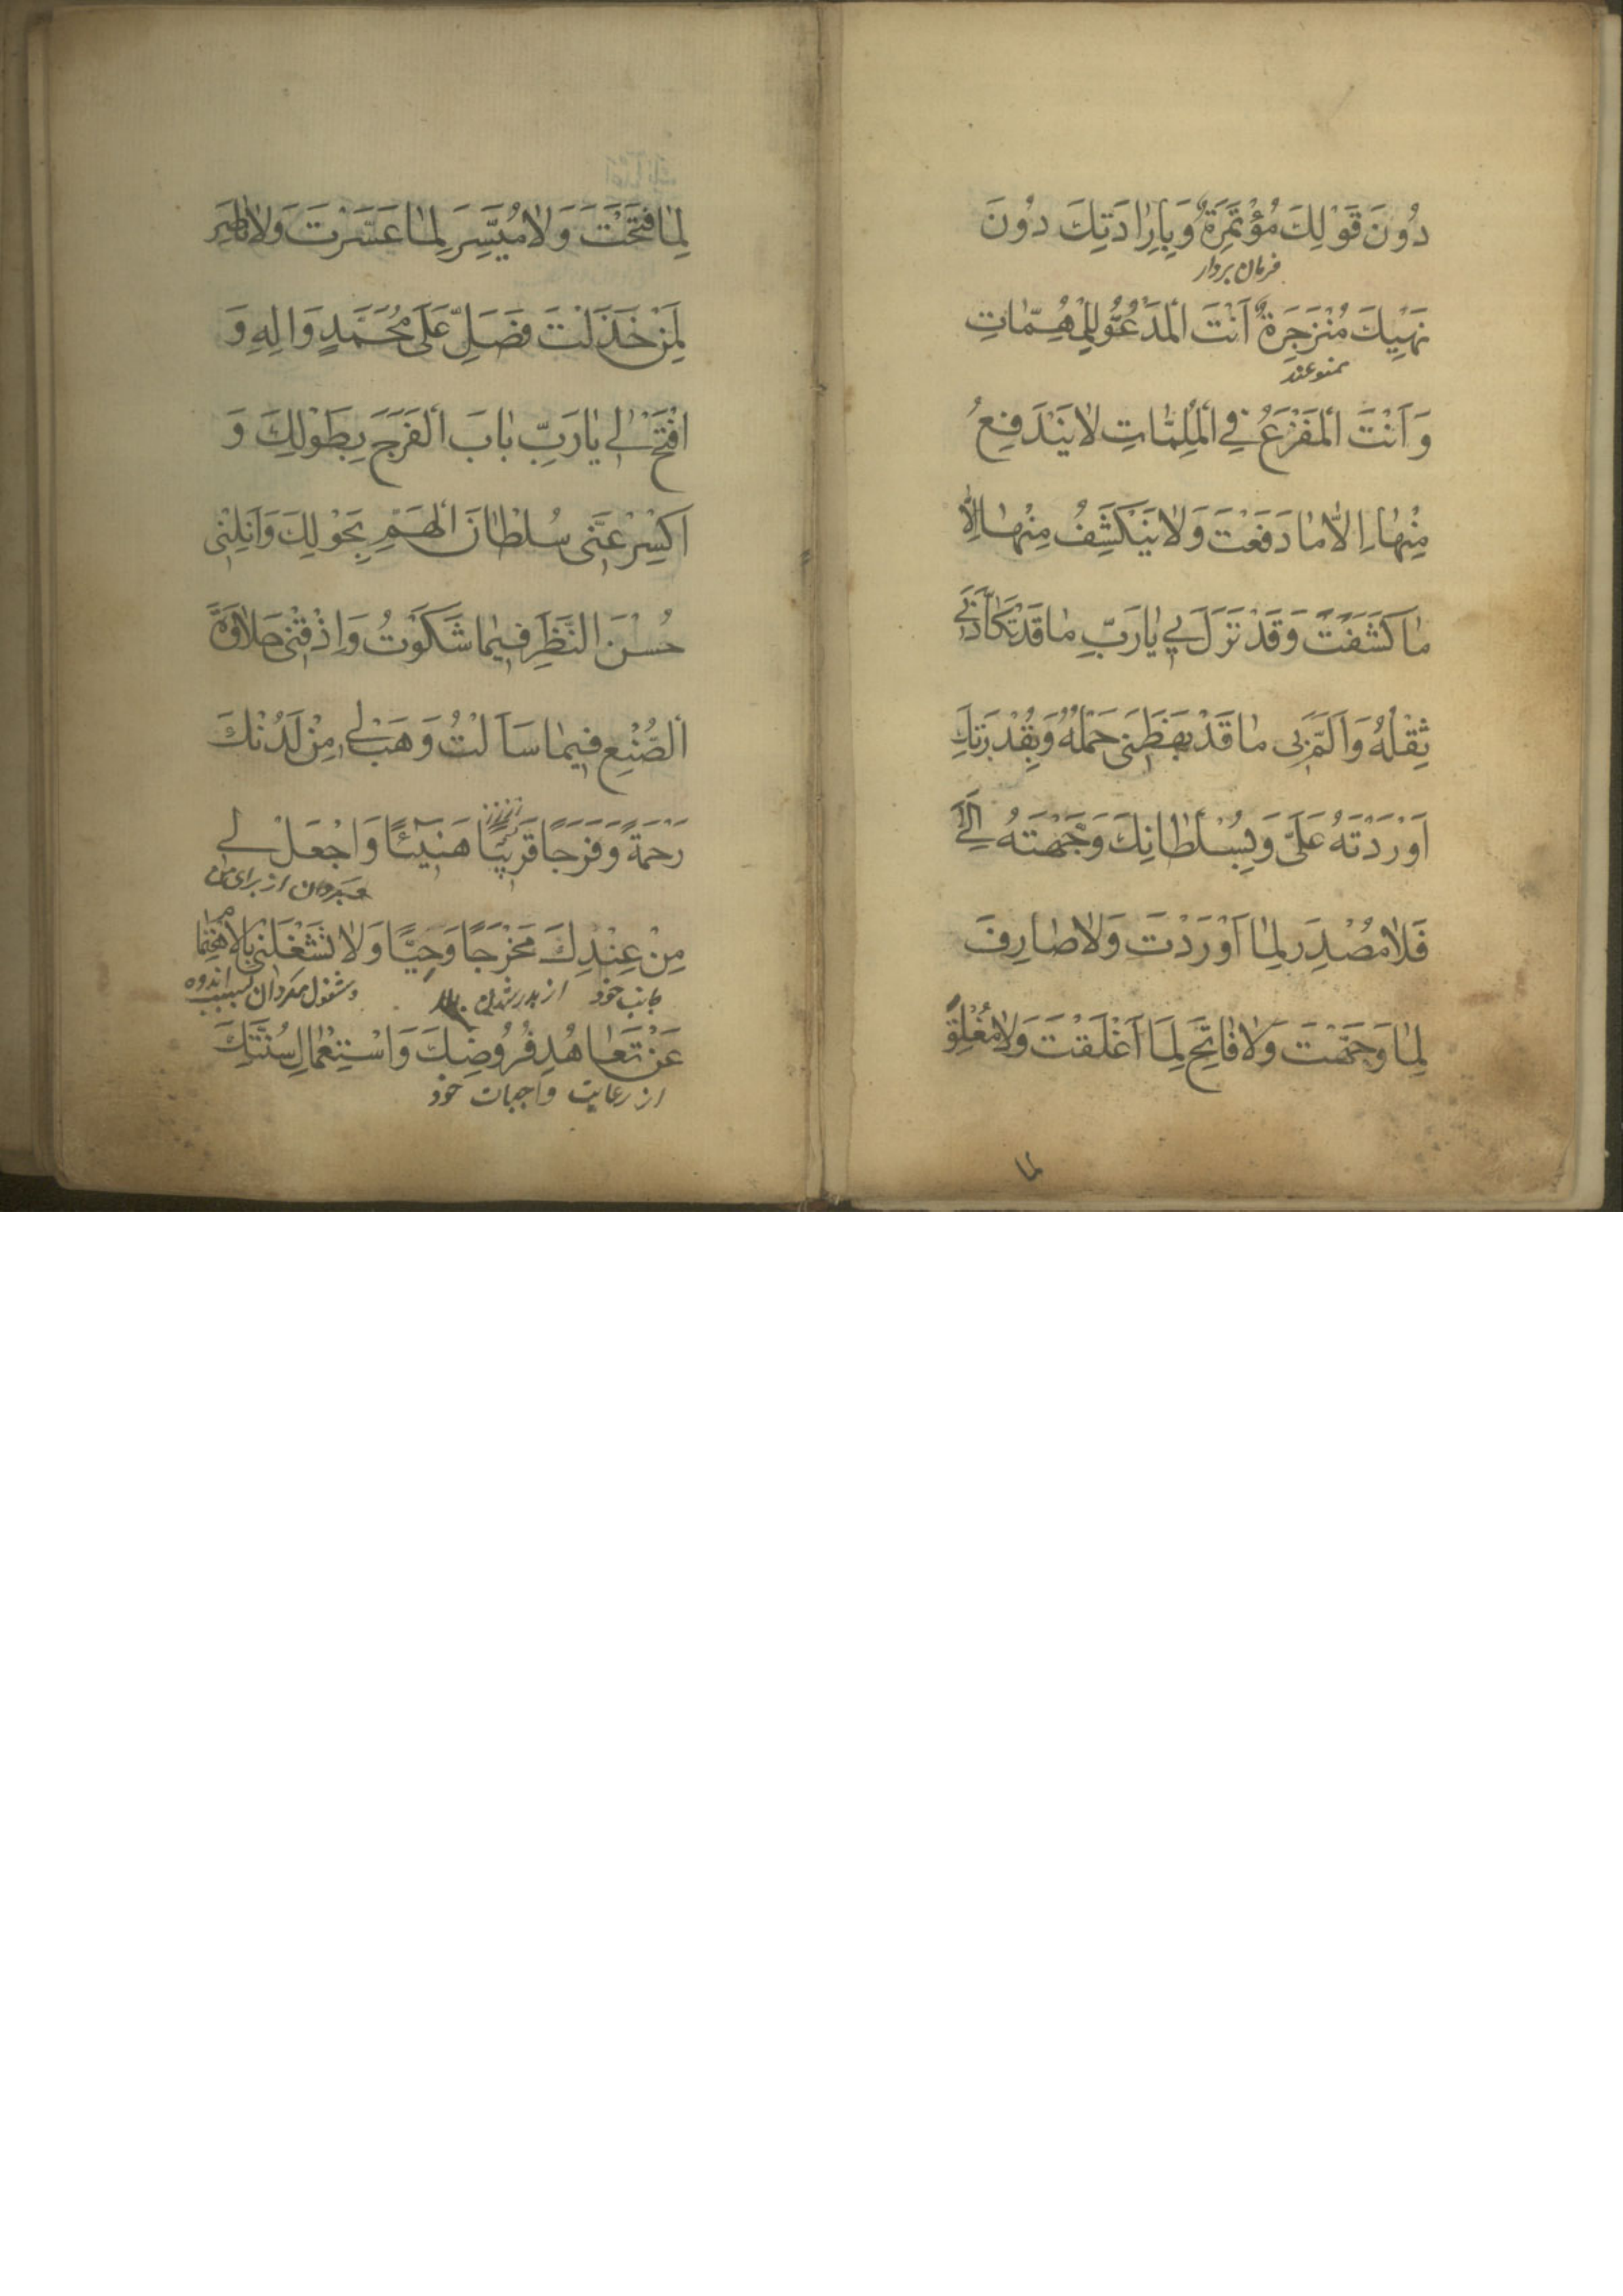 دُونَ قَوْلِكَ مُؤْتَمِرَةٌ وَبِاِرٰادَتِكَ دُونَ
فرمان بردار
نَهْيِكَ مُنْزَجِرَةٌ اَنْتَ الْمَدْعُوُّ لِلْمُهِمّٰاتِ
ممنوعند
وَ اَنْتَ الْمَفْزَعُ فِي الْمُلِمّٰاتِ لٰا يَنْدَفِعُ
مِنْهٰا اِلّٰا مٰا دَفَعْتَ وَ لٰا يَنْكَشِفُ مِنْهٰا اِلّٰا
مٰا كَشَفْتَ وَ قَدْ نَزَلَ بِي يٰا رَبِّ مٰا قَدْ تَكَأَّدَنِي
ثِقْلُهُ وَ اَلَمَّ بِي مٰا قَدْ بَهَظَنِي حَمْلُهُ وَ بِقُدْرَتِكَ
اَوْرَدْتَهُ عَلَيَّ وَ بِسُلْطٰانِكَ وَجَّهْتَهُ اِلَيَّ
فَلٰا مُصْدِرَ لِمٰا اَوْرَدْتَ وَ لٰا صٰارِفَ
لِمٰا وَجَّهْتَ وَ لٰا فٰاتِحَ لِمٰا اَغْلَقْتَ وَ لٰا مُغْلِقَ
لما
لِمٰا فَتَحْتَ وَ لٰا مُيَسِّرَ لِمٰا عَسَّرْتَ وَ لٰا نٰاصِرَ
لِمَنْ خَذَلْتَ فَصَلِّ عَلَى مُحَمَّدٍ وَ اٰلِهِ وَ
افْتَحْ لِي يٰا رَبِّ بٰابَ الْفَرَجِ بِطَوْلِكَ وَ
اَكْسِرْ عَنِّي سُلْطٰانَ الْهَمِّ بِحَوْلِكَ وَ اَنِلْنِي
حُسْنَ النَّظَرِ فِيمٰا شَكَوْتُ وَ اِذْقِنِي حَلٰاوَةَ
الصُّنْعِ فِيمٰا سَاَلْتُ وَ هَبْ لِي مِنْ لَدُنْكَ
رَحْمَةً وَ فَرَجًا قَرِيبًا هَنِيئًا وَ اجْعَلْ لِي
از برای من
مِنْ عِنْدِكَ مَخْرَجًا وَحِيًّا وَ لٰا تَشْغَلْنِي بِالْاِهْتِمٰامِ
جانب خود از بدر شدن و مشغول مگردان بسبب اندوه
عَنْ تَعٰاهُدِ فُرُوضِكَ وَ اسْتِعْمٰالِ سُنَّتِكَ
از رعایت واجبات خود